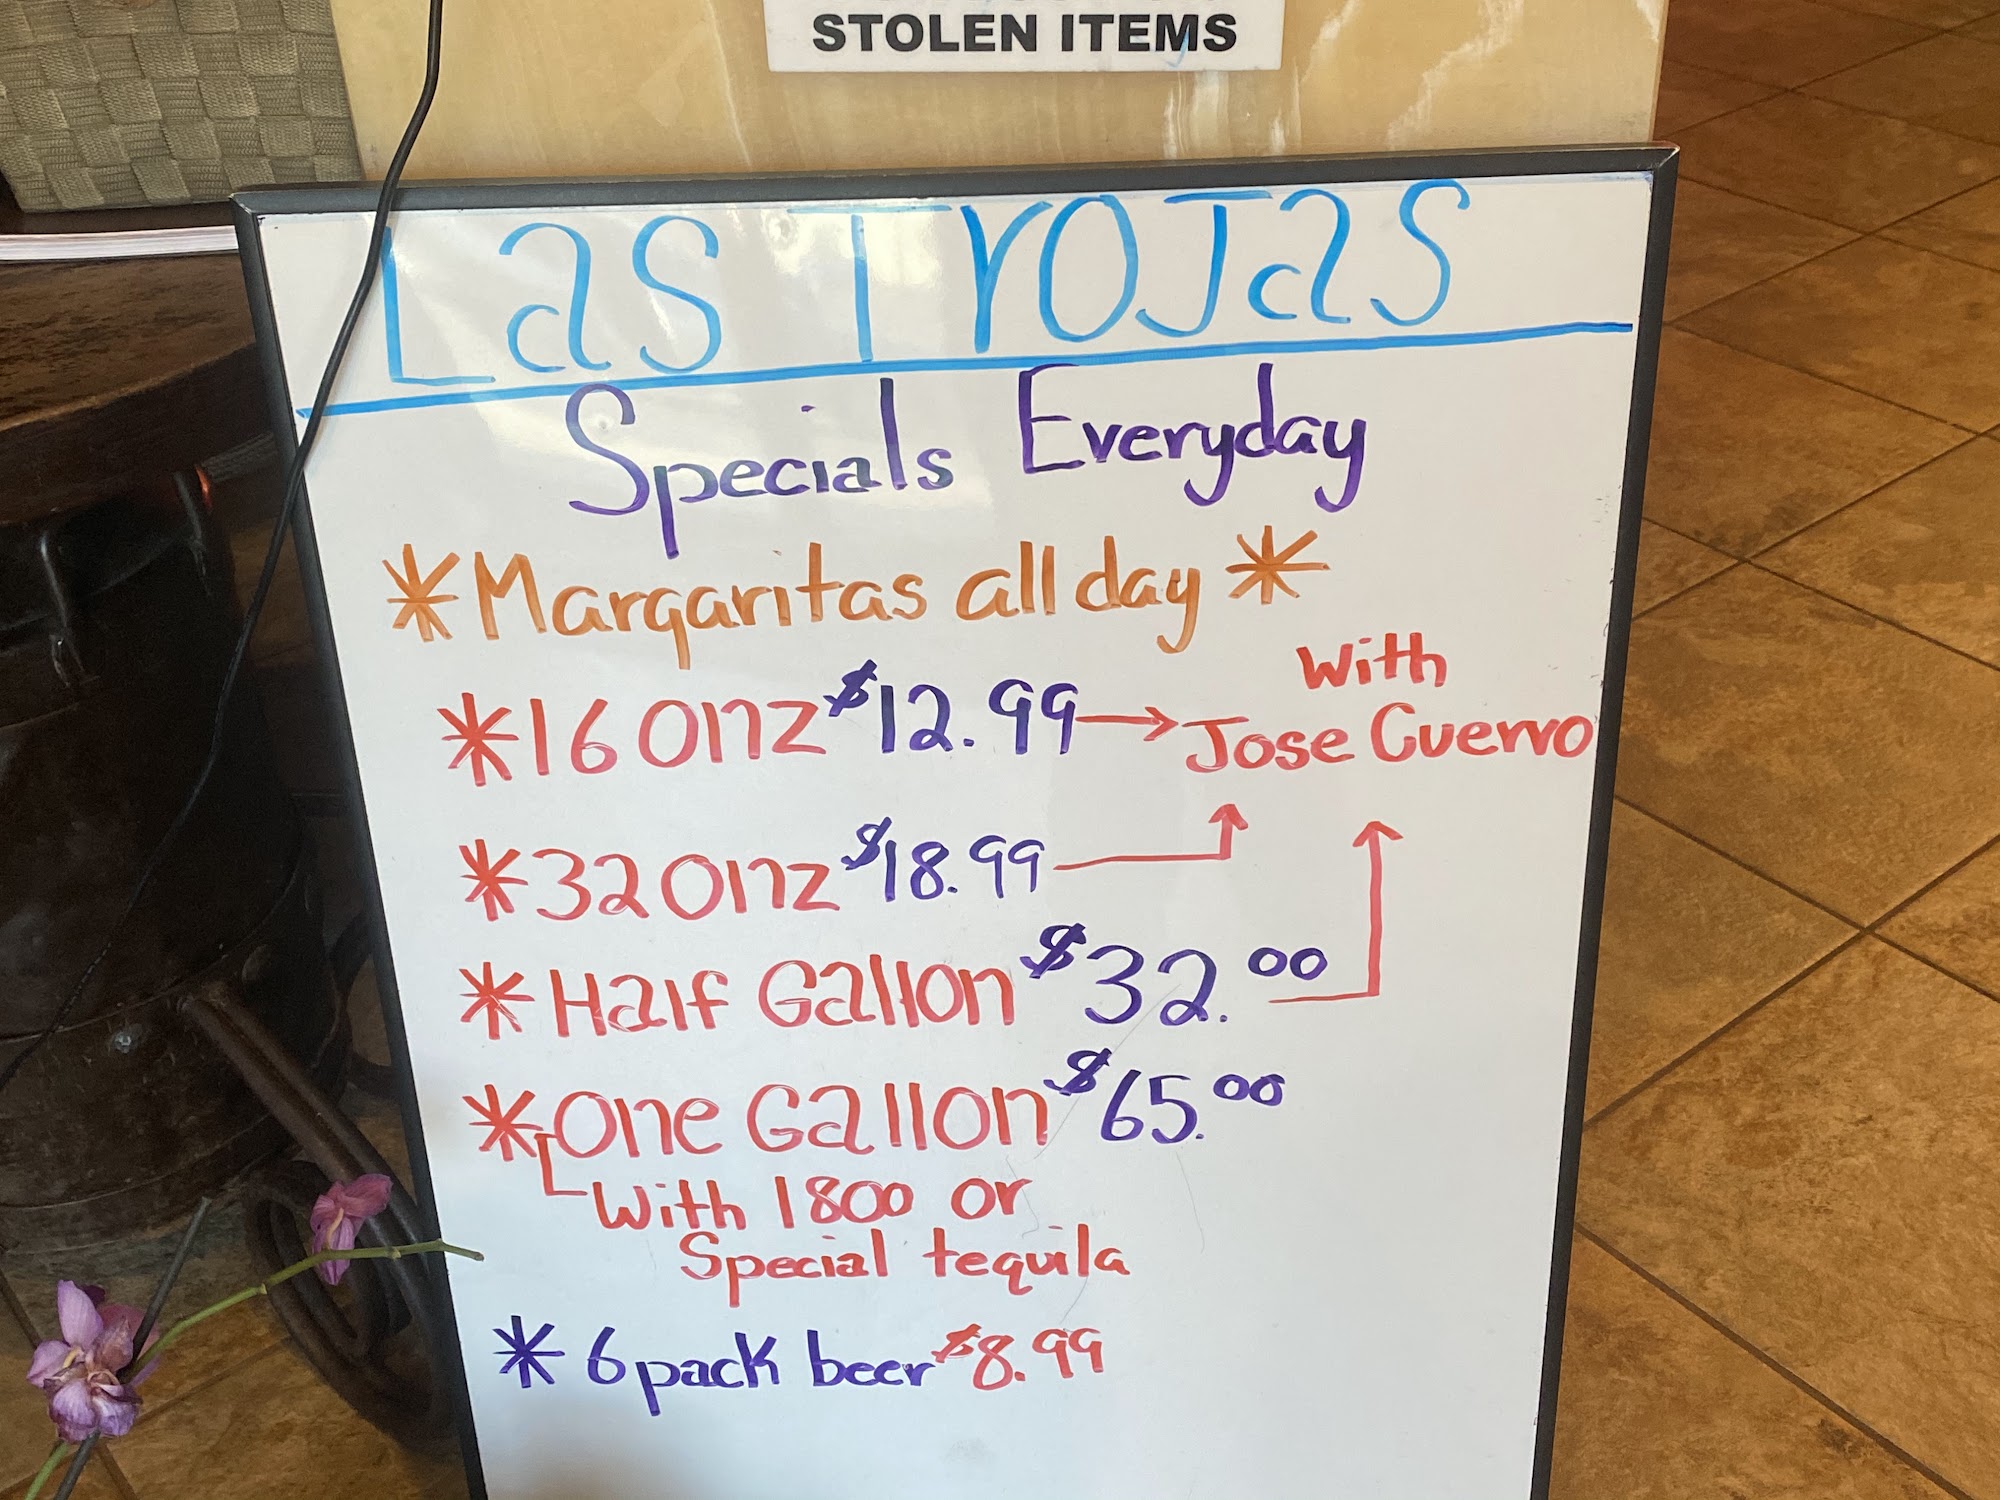 STOLEN ITEMS
Las Trojas
Specials Everyday
*Margaritas all day*
*16 Onz $12.99 → with
Jose Cuervo
*32 Onz $18.99
*Half Gallon $32.00
*One Gallon $65.00
With 1800 or
Special tequila
*6 pack beer $8.99